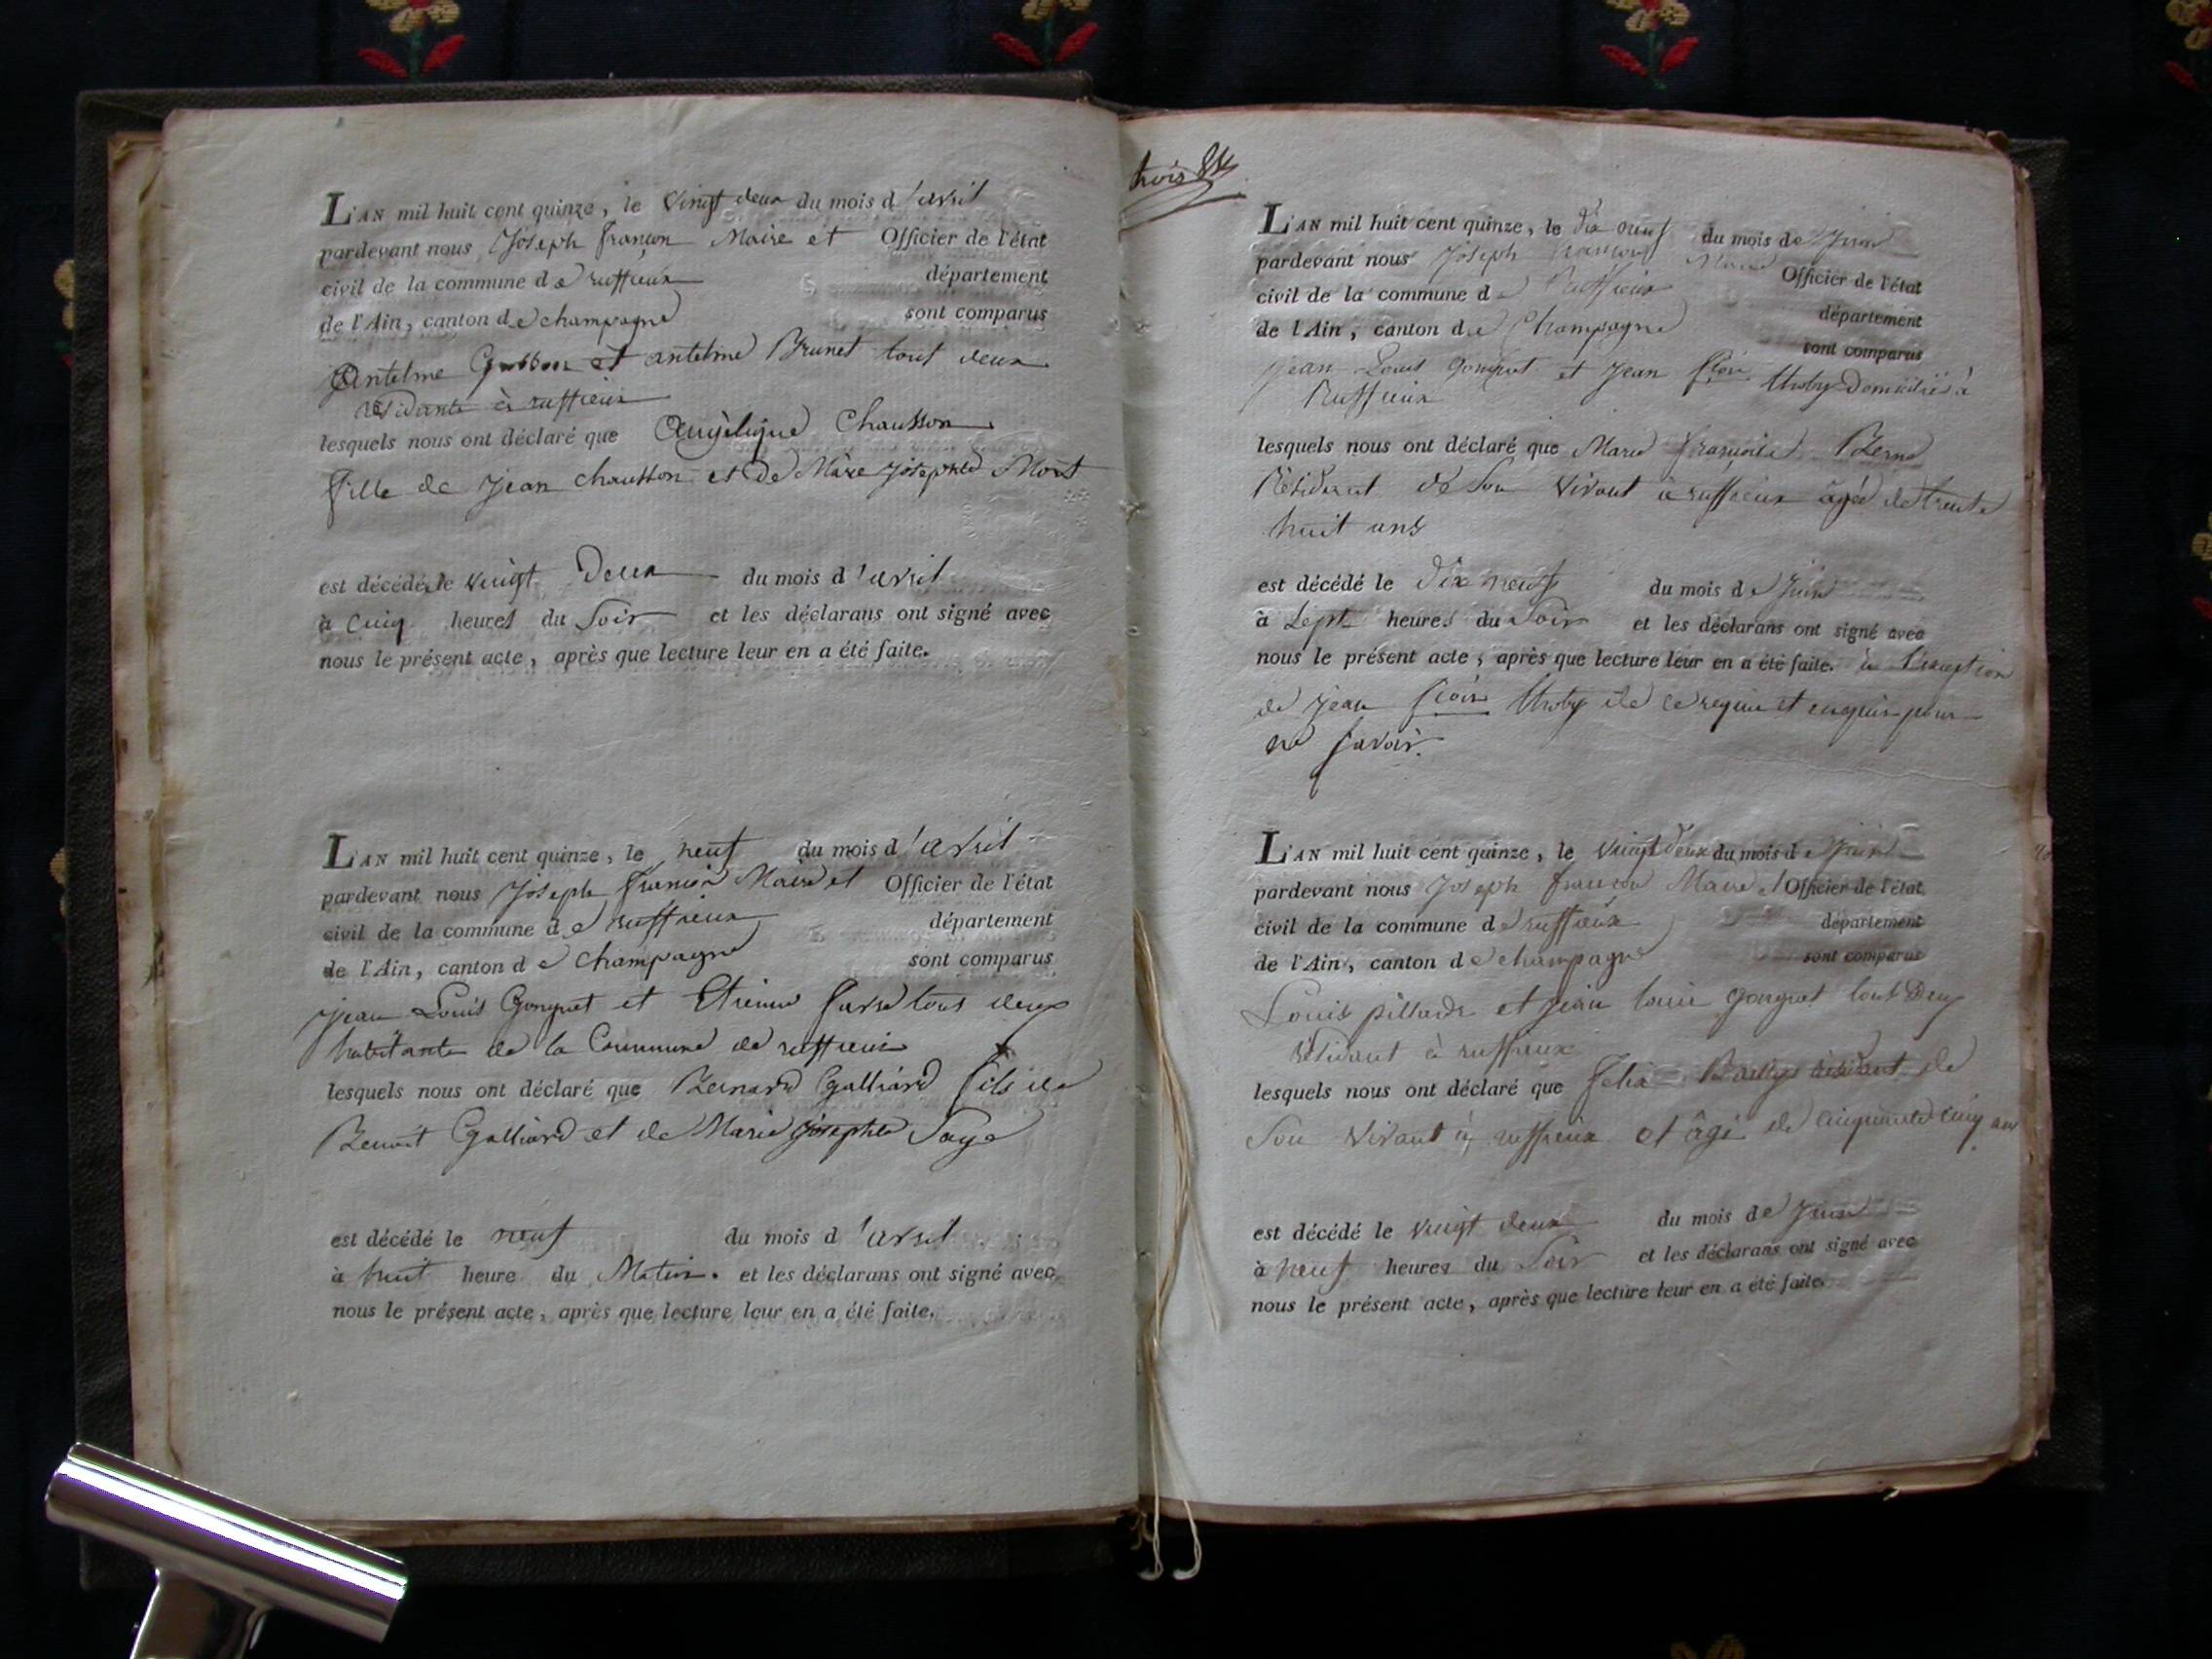 L'AN mil huit cent quinze, le vingt deux du mois d'avril
pardevant nous Joseph françon Maire et Officier de l'état
civil de la commune de ruffieux département
de l'Ain, canton de champagne sont comparus
Antelme et antelme Brunet tout deux
résidants à ruffieux
lesquels nous ont déclaré que Angèlique Chausson
fille de Jean chausson et de Marie Josephte Mort
est décédé le vingt Deux du mois d'avril
à cinq heures du Soir et les déclarans ont signé avec
nous le présent acte, après que lecture leur en a été faite.
L'AN mil huit cent quinze, le neuf du mois d'avril
pardevant nous Joseph françon Maire et Officier de l'état
civil de la commune de ruffieux département
de l'Ain, canton de champagne sont comparus
Jean Louis Gonguet et Etienne tous deux
habitants de la Commune de ruffieux
lesquels nous ont déclaré que Bernard Galliard fils de
Benoit Galliard et de Marie Josephte
est décédé le neuf du mois d'avril
à huit heure du Matin. et les déclarans ont signé avec
nous le présent acte, après que lecture leur en a été faite.
trois
L'AN mil huit cent quinze, le dix neuf du mois de Juin
pardevant nous Joseph françon Maire Officier de l'état
civil de la commune de Ruffieux département
de l'Ain, canton de Champagne sont comparus
jean Louis Gonguet et Jean domiciliés à
Ruffieux
lesquels nous ont déclaré que Marie françoise
Résidant de Son vivant à ruffieux âgée de trente
huit ans
est décédé le dix neuf du mois de Juin
à Sept heures du Soir et les déclarans ont signé avec
nous le présent acte, après que lecture leur en a été faite. à l'exception
de Jean de ce requis et enquis pour
ne savoir.
L'AN mil huit cent quinze, le vingt deux du mois de Juin
pardevant nous Joseph françon Maire et Officier de l'état
civil de la commune de ruffieux département
de l'Ain, canton de champagne sont comparus
Louis et jean louis gonguet tout Deux
résidant à ruffieux
lesquels nous ont déclaré que felix résidant de
Son vivant à ruffieux et âgé de cinquante cinq ans
est décédé le vingt deux du mois de Juin
à neuf heures du Soir et les déclarans ont signé avec
nous le présent acte, après que lecture leur en a été faite.